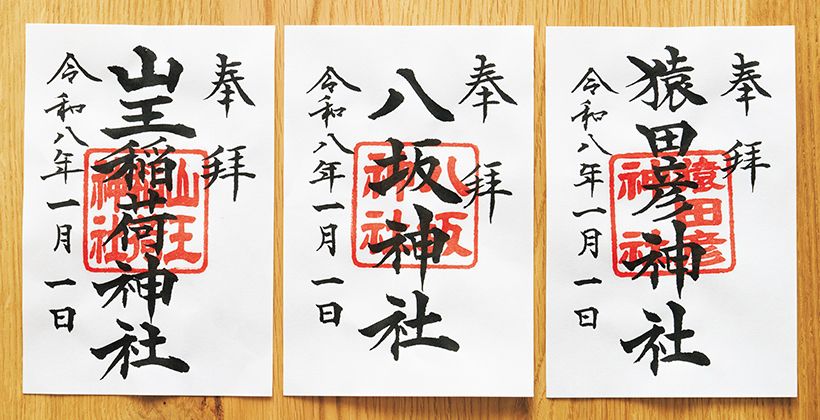 奉拝
山王稲荷神社
令和八年一月一日
山王
稲荷
神社
奉拝
八坂神社
令和八年一月一日
八坂
神社
奉拝
猿田彦神社
令和八年一月一日
猿田彦
神社